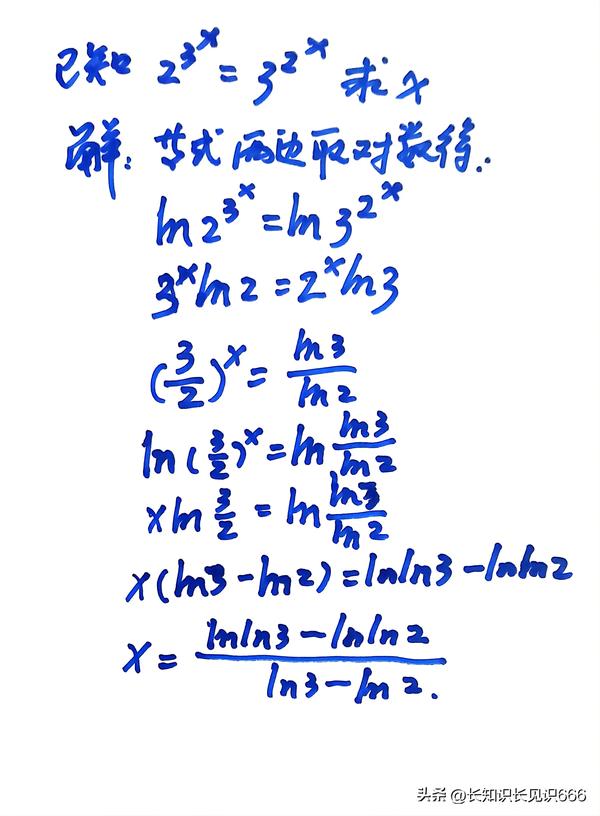 已知 2^{3^x} = 3^{2^x} 求 x
解: 等式两边取对数得:
ln 2^{3^x} = ln 3^{2^x}
3^x ln 2 = 2^x ln 3
(3/2)^x = ln 3 / ln 2
ln (3/2)^x = ln (ln 3 / ln 2)
x ln 3/2 = ln (ln 3 / ln 2)
x (ln 3 - ln 2) = ln ln 3 - ln ln 2
x = (ln ln 3 - ln ln 2) / (ln 3 - ln 2).
头条 @长知识长见识666